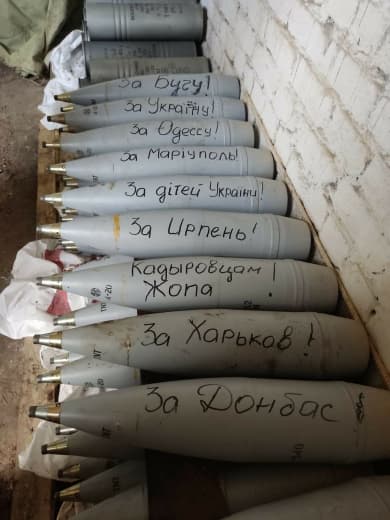 За Бучу!
За Україну!
За Одессу!
За Маріуполь!
За дітей України!
За Ирпень!
Кадыровцам!
Жопа
За Харьков!
За Донбас